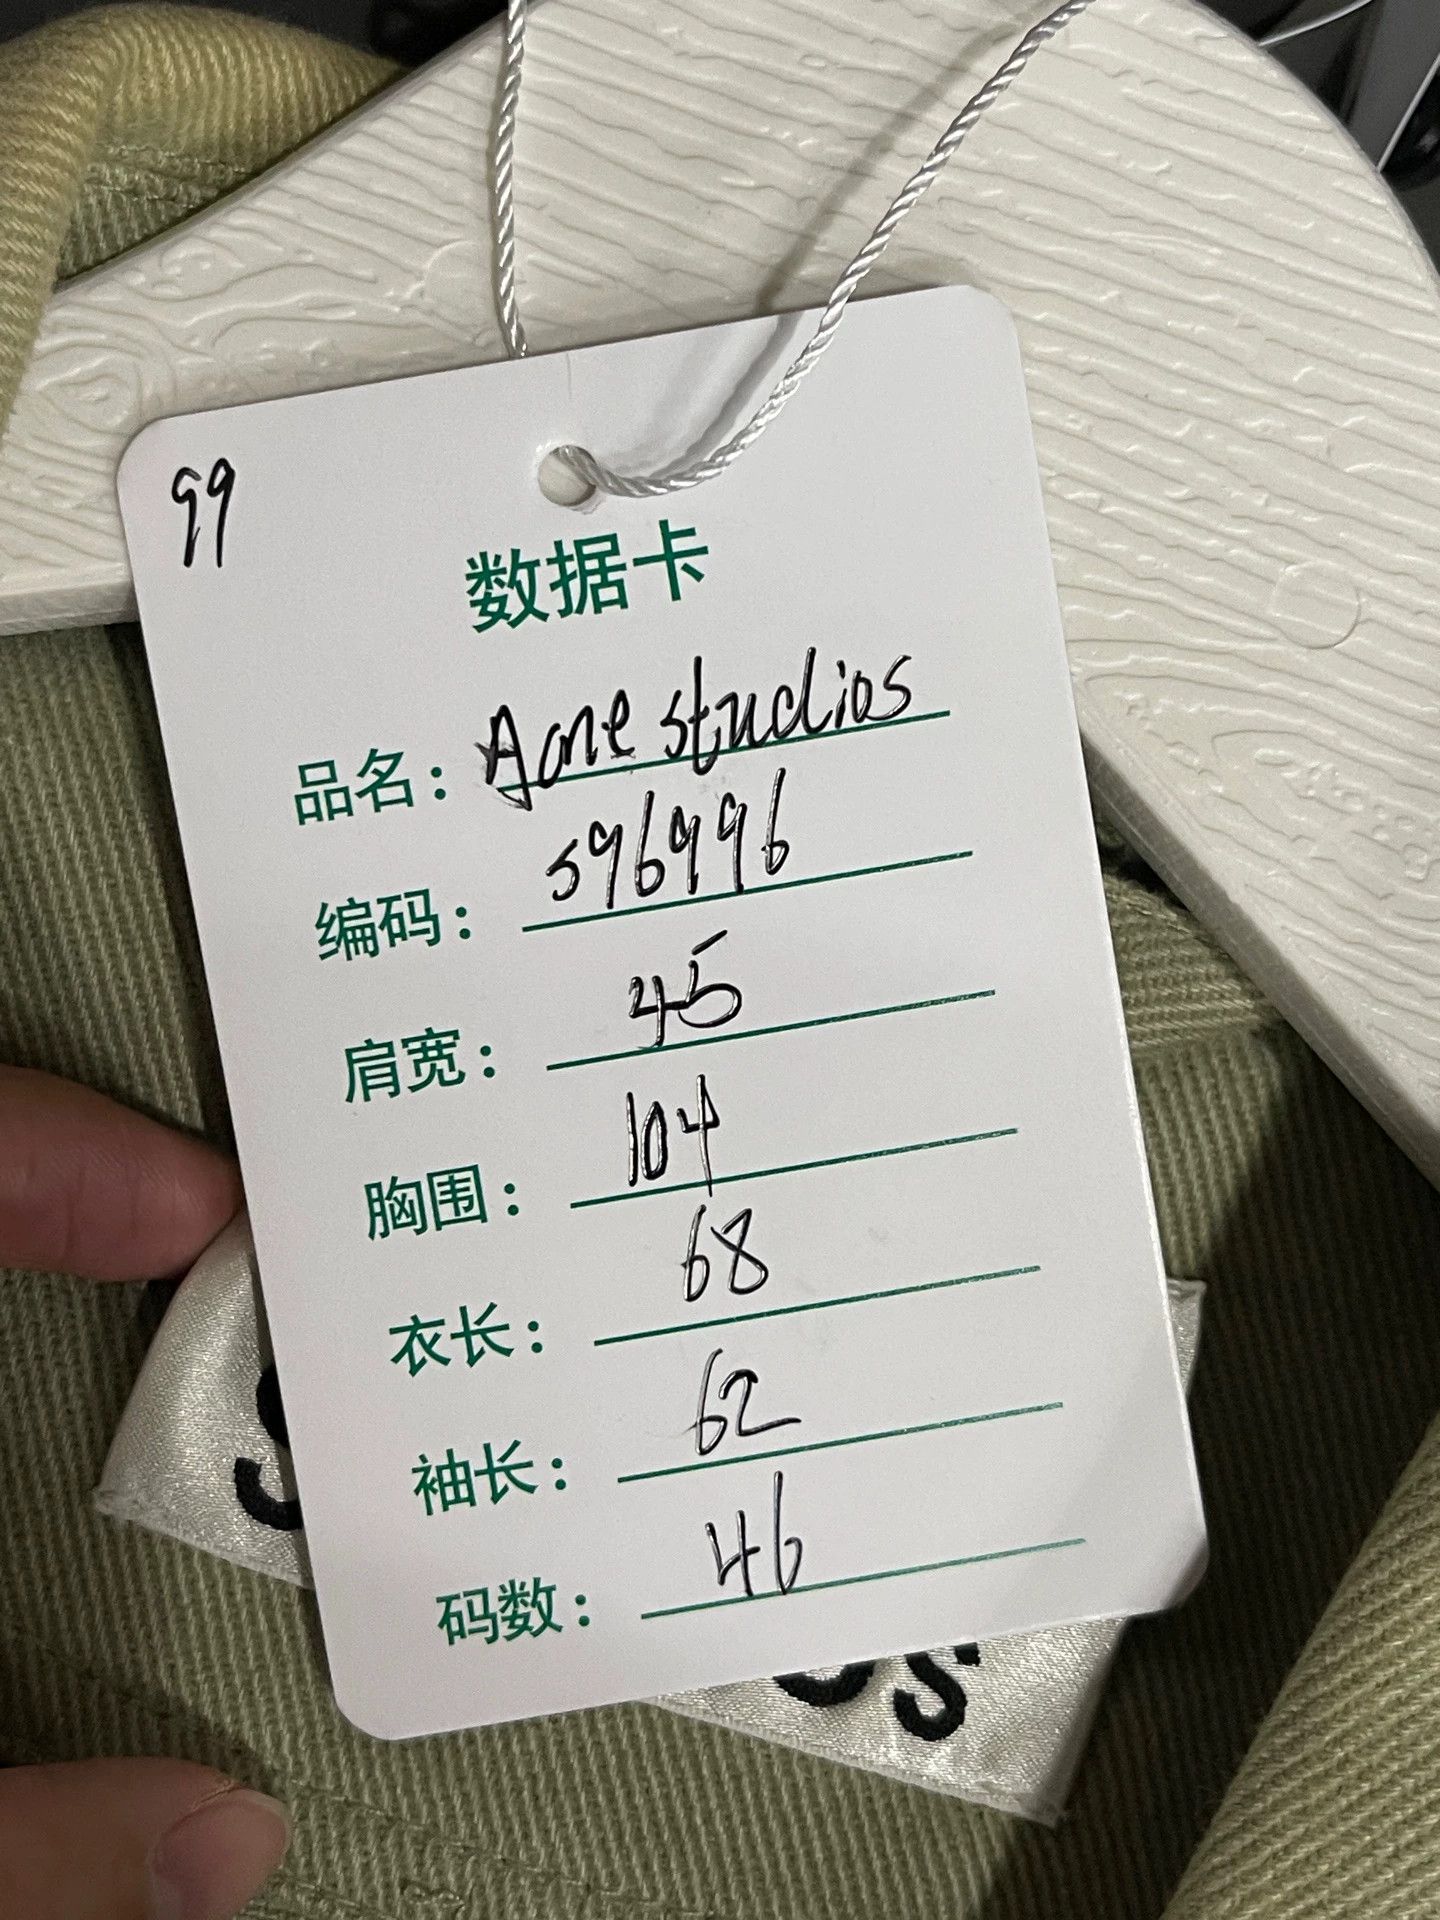 99
数据卡
品名：Acne studios
编码：596996
肩宽：45
胸围：104
衣长：68
袖长：62
码数：46